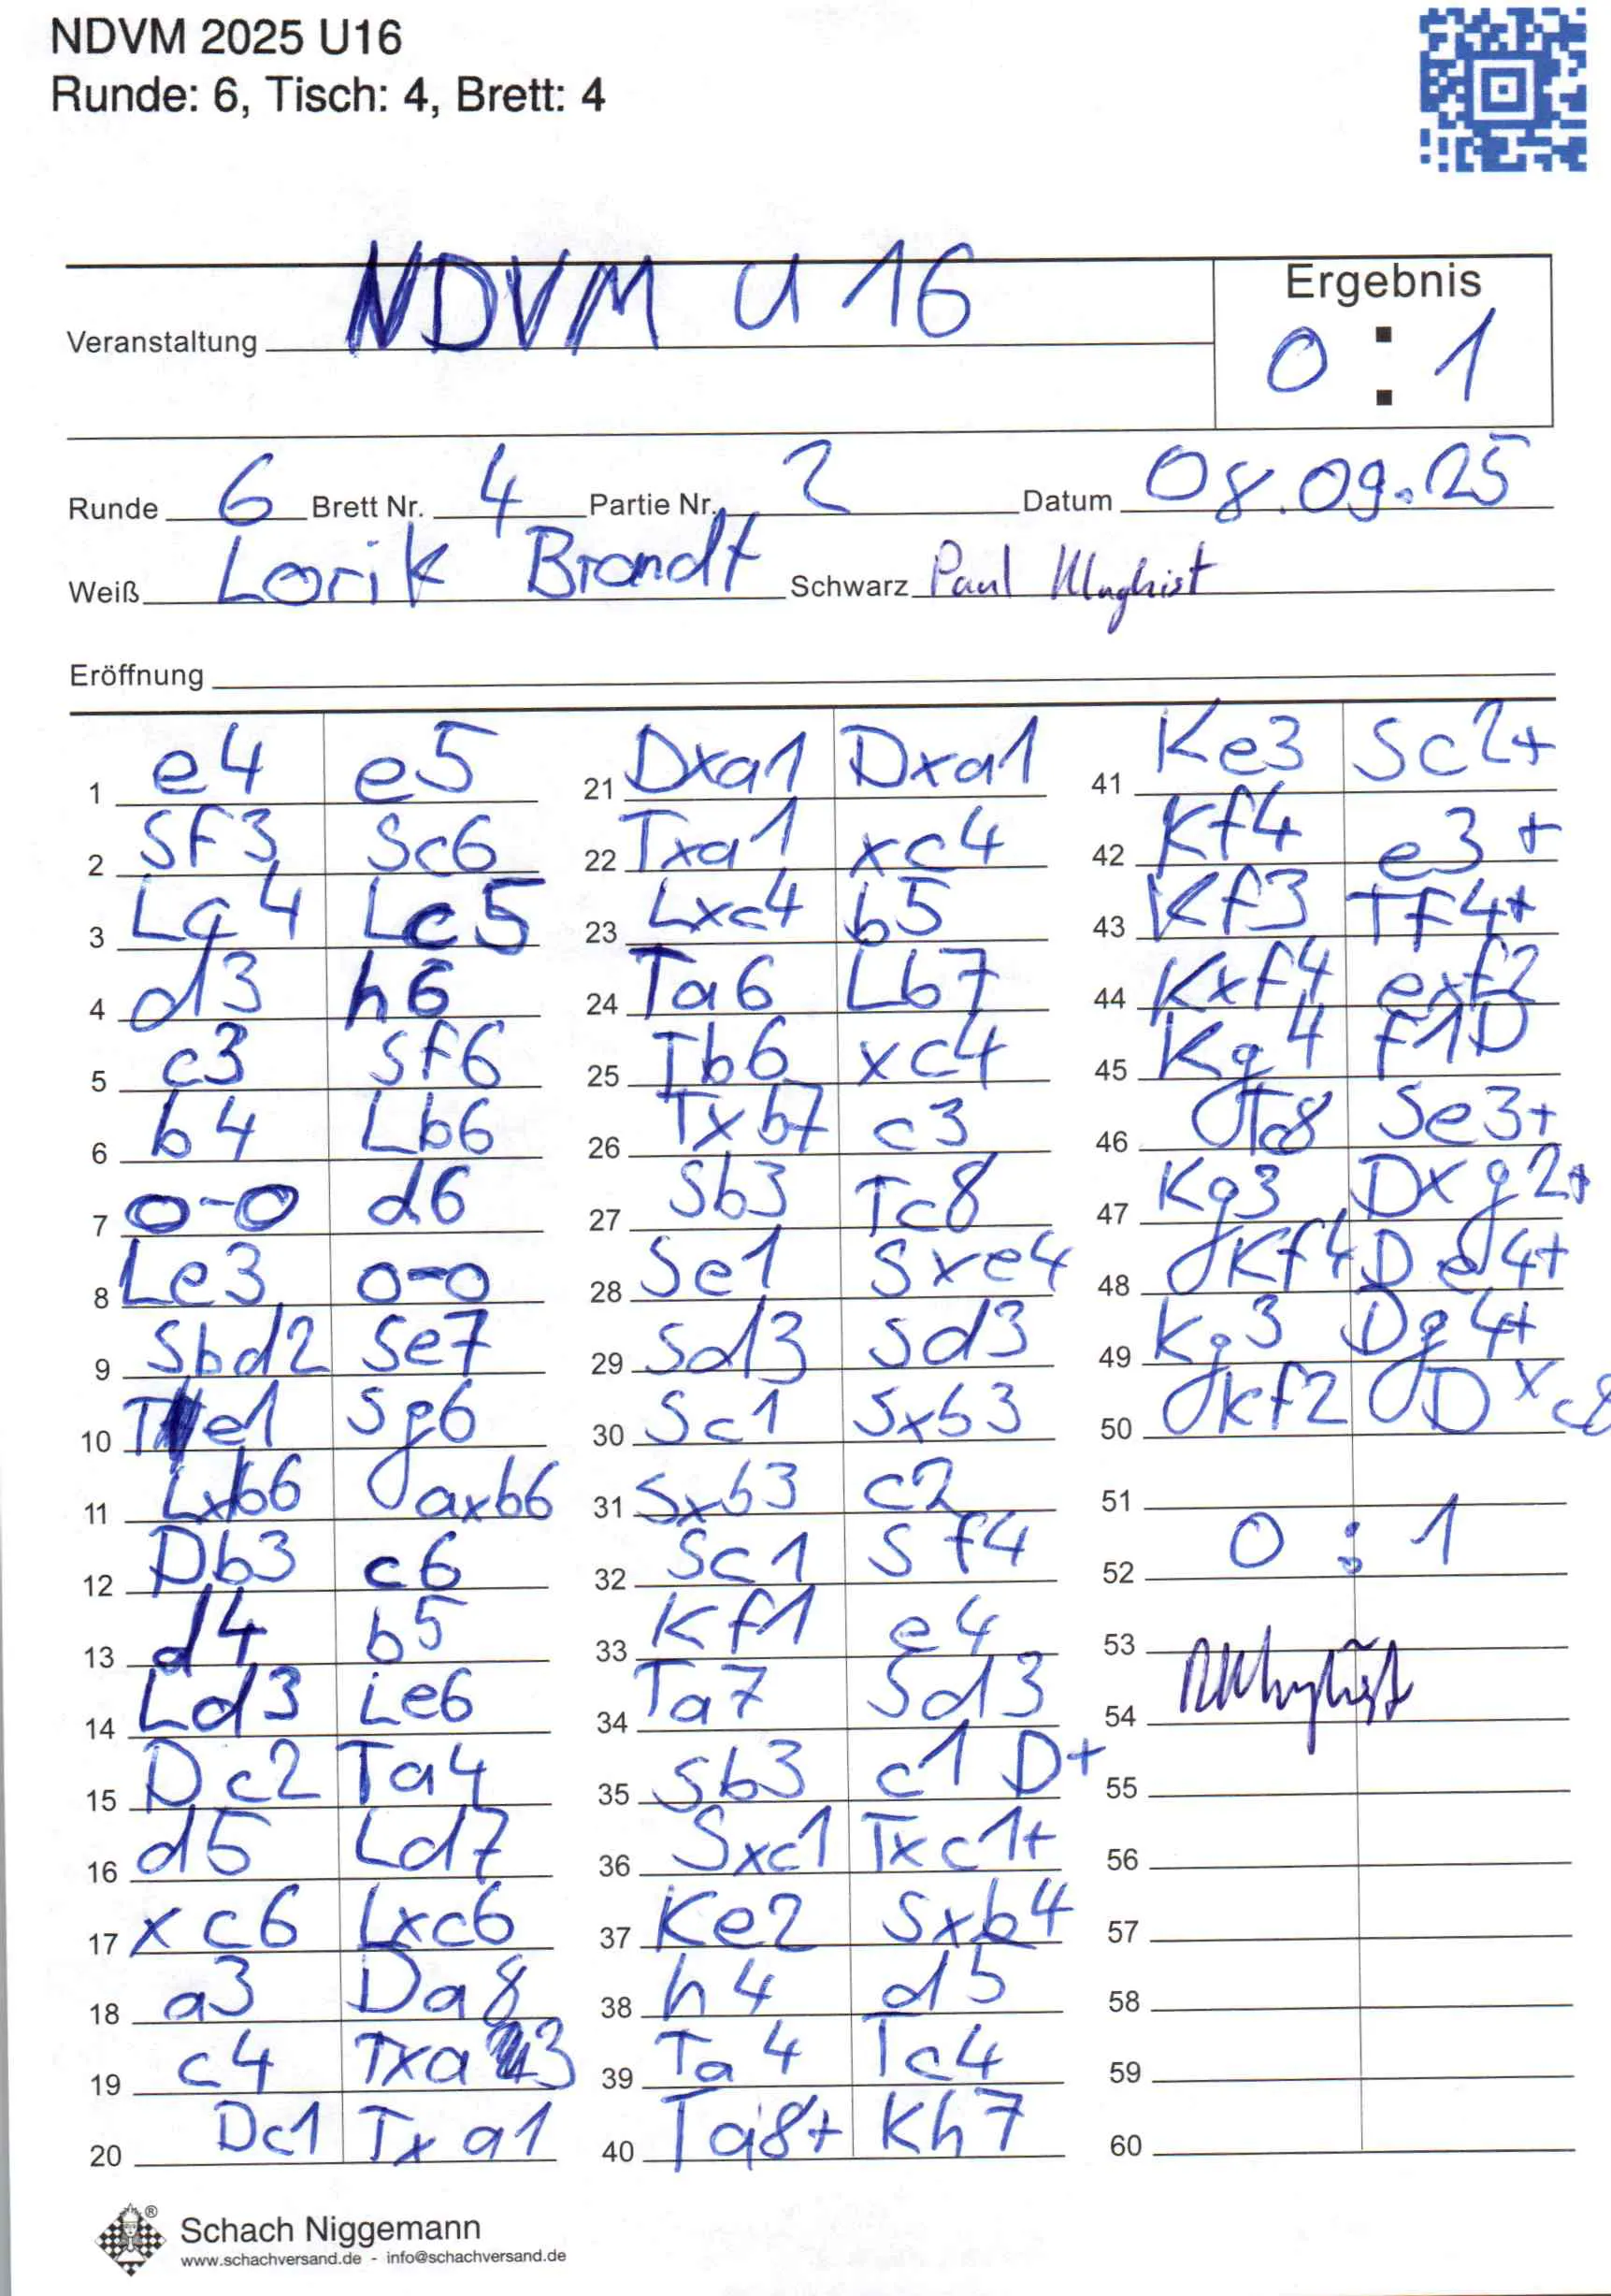 NDVM 2025 U16
Runde: 6, Tisch: 4, Brett: 4
Veranstaltung NDVM U 16
Ergebnis
0 : 1
Runde 6 Brett Nr. 4 Partie Nr. 2 Datum 08.09.25
Weiß Lorik Brandt Schwarz Paul
Eröffnung
1 e4 e5
2 Sf3 Sc6
3 Lc4 Lc5
4 d3 h6
5 c3 Sf6
6 b4 Lb6
7 0-0 d6
8 Le3 0-0
9 Sbd2 Se7
10 Te1 Sg6
11 Lxb6 axb6
12 Db3 c6
13 d4 b5
14 Ld3 Le6
15 Dc2 Ta4
16 d5 Ld7
17 xc6 Lxc6
18 a3 Da8
19 c4 Txa3
20 Dc1 Txa1
21 Dxa1 Dxa1
22 Txa1 xc4
23 Lxc4 b5
24 Ta6 Lb7
25 Tb6 xc4
26 Txb7 c3
27 Sb3 Tc8
28 Se1 Sxe4
29 Sd3 Sd3
30 Sc1 Sxb3
31 Sxb3 c2
32 Sc1 Sf4
33 Kf1 e4
34 Ta7 Sd3
35 Sb3 c1D+
36 Sxc1 Txc1+
37 Ke2 Sxb4
38 h4 d5
39 Ta4 Tc4
40 Ta8+ Kh7
41 Ke3 Sc2+
42 Kf4 e3+
43 Kf3 Tf4+
44 Kxf4 exf2
45 Kg4 f1D
46 Tc8 Se3+
47 Kg3 Dxg2+
48 Kf4 De4+
49 Kg3 Dg4+
50 Kf2 Dxc8
51
52 0 : 1
53
54
55
56
57
58
59
60
Schach Niggemann
www.schachversand.de - info@schachversand.de